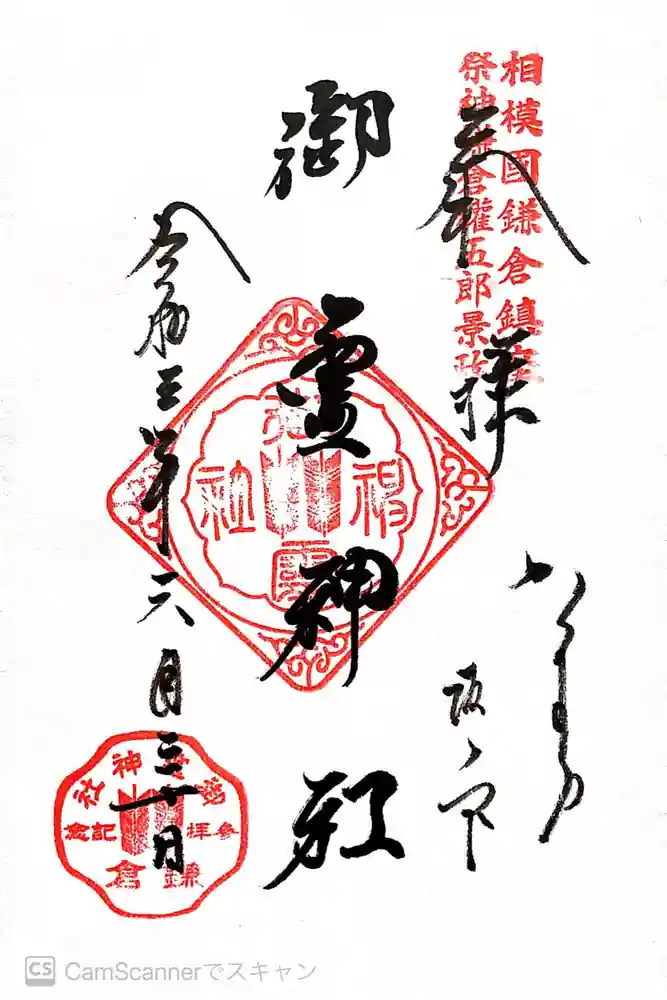 相模國鎌倉鎮座
祭神鎌倉權五郎景政
奉拝
かまくら
坂ノ下
御霊神社
御靈神社
令和三年六月三十日
御霊神社
参拝記念
鎌倉
CS CamScannerでスキャン